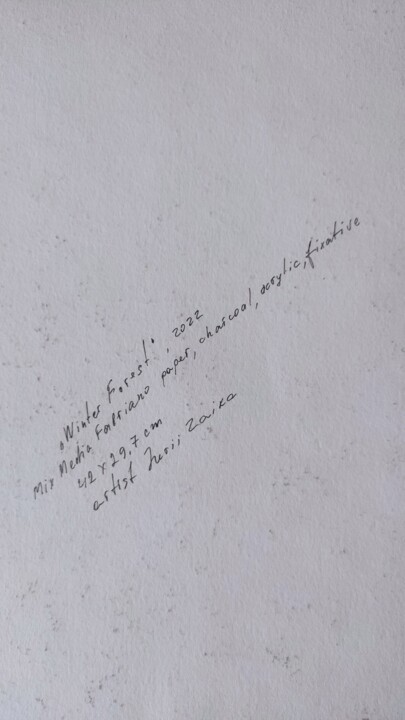 „Winter Forest", 2022
Mix Media Fabriano paper, charcoal, acrylic, fixative
42 x 29,7 cm
artist Zaika